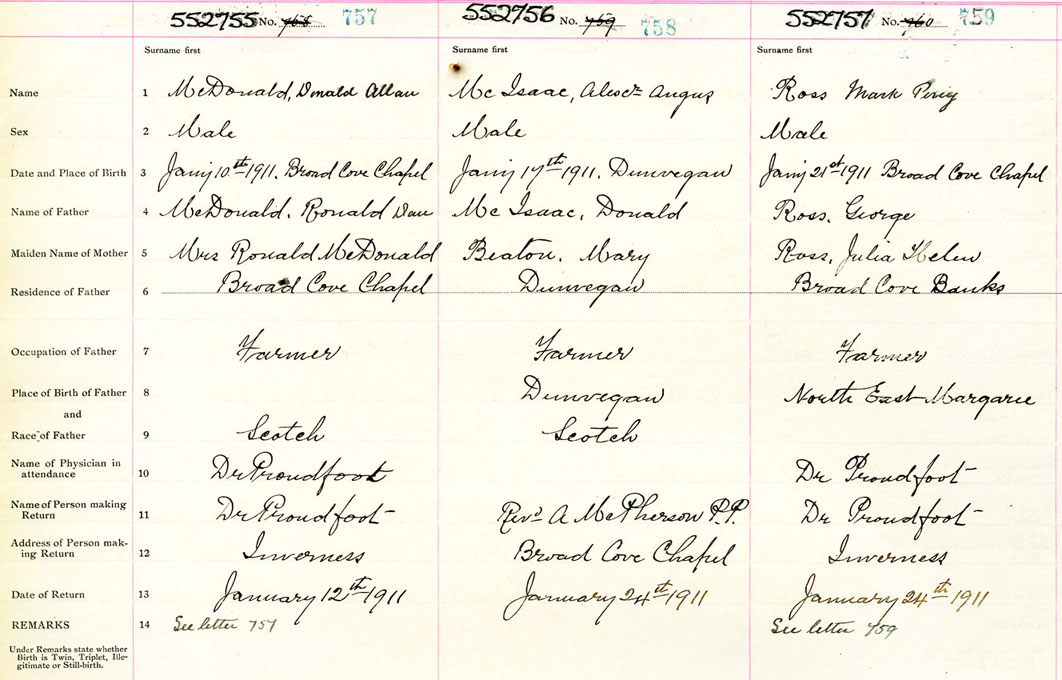 552755 No. 757
552756 No. 759 758
552757 No. 760 759
Surname first Surname first Surname first
Name 1 McDonald, Donald Allan Mc Isaac, Alexr Angus Ross Mark Percy
Sex 2 Male Male Male
Date and Place of Birth 3 Jany 10th 1911. Broad Cove Chapel Jany 17th 1911. Dunvegan Jany 21st 1911 Broad Cove Chapel
Name of Father 4 McDonald. Ronald Dan Mc Isaac, Donald Ross, George
Maiden Name of Mother 5 Mrs Ronald McDonald Beaton. Mary Ross, Julia Helen
Residence of Father 6 Broad Cove Chapel Dunvegan Broad Cove Banks
Occupation of Father 7 Farmer Farmer Farmer
Place of Birth of Father 8 Dunvegan North East Margaree
and
Race of Father 9 Scotch Scotch
Name of Physician in
attendance 10 Dr Proudfoot Dr Proudfoot
Name of Person making
Return 11 Dr Proudfoot Revd A McPherson P.P. Dr Proudfoot
Address of Person mak-
ing Return 12 Inverness Broad Cove Chapel Inverness
Date of Return 13 January 12th 1911 January 24th 1911 January 24th 1911
REMARKS 14 See letter 757 See letter 759
Under Remarks state whether
Birth is Twin, Triplet, Ille-
gitimate or Still-birth.